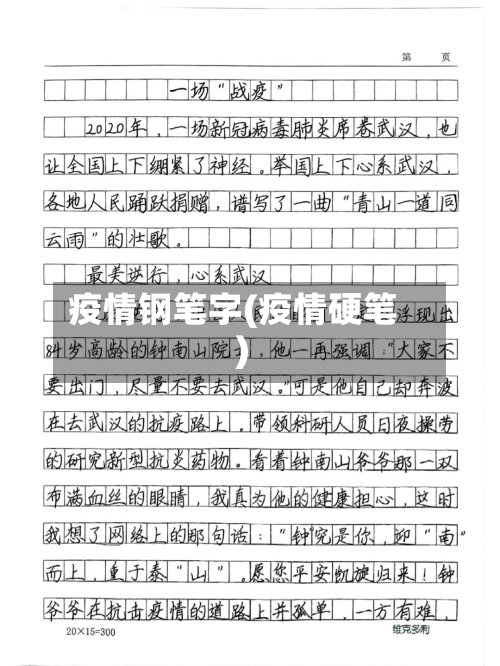 第 页
一场“战疫”
2020年，一场新冠病毒肺炎席卷武汉，也
让全国上下绷紧了神经。举国上下心系武汉，
各地人民踊跃捐赠，谱写了一曲“青山一道同
云雨”的壮歌。
最美逆行，心系武汉
疫情钢笔字(疫情硬笔
)
浮现出
84岁高龄的钟南山院士，他一再强调：“大家不
要出门，尽量不要去武汉。”可是他自己却奔波
在去武汉的抗疫路上。带领科研人员日夜操劳
的研究新型抗炎药物。看着钟南山爷爷那一双
布满血丝的眼睛，我真为他的健康担心，这时
我想了网络上的那句话：“钟”究是你，迎“南”
而上，重于泰“山”。愿您平安凯旋归来！钟
爷爷在抗击疫情的道路上并孤单，一方有难，
20×15=300 维克多利